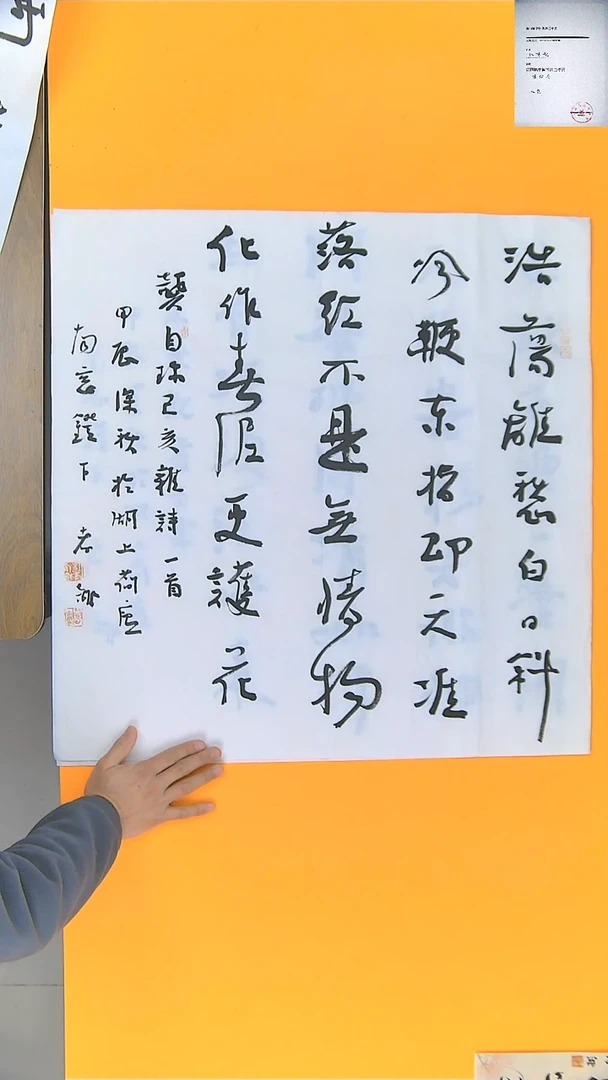 浩蕩離愁白日斜
吟鞭東指即天涯
落紅不是無情物
化作春泥更護花
龔自珍己亥雜詩一首
甲辰深秋於湖上荷廬
南窓鐙下